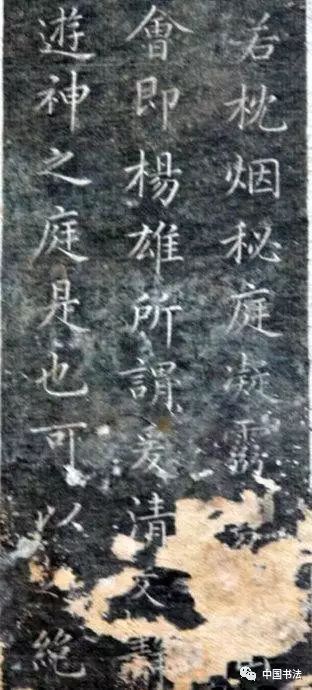 若枕烟秘庭凝
會即楊雄所謂爰清爰静
遊神之庭是也可以絶
中国书法